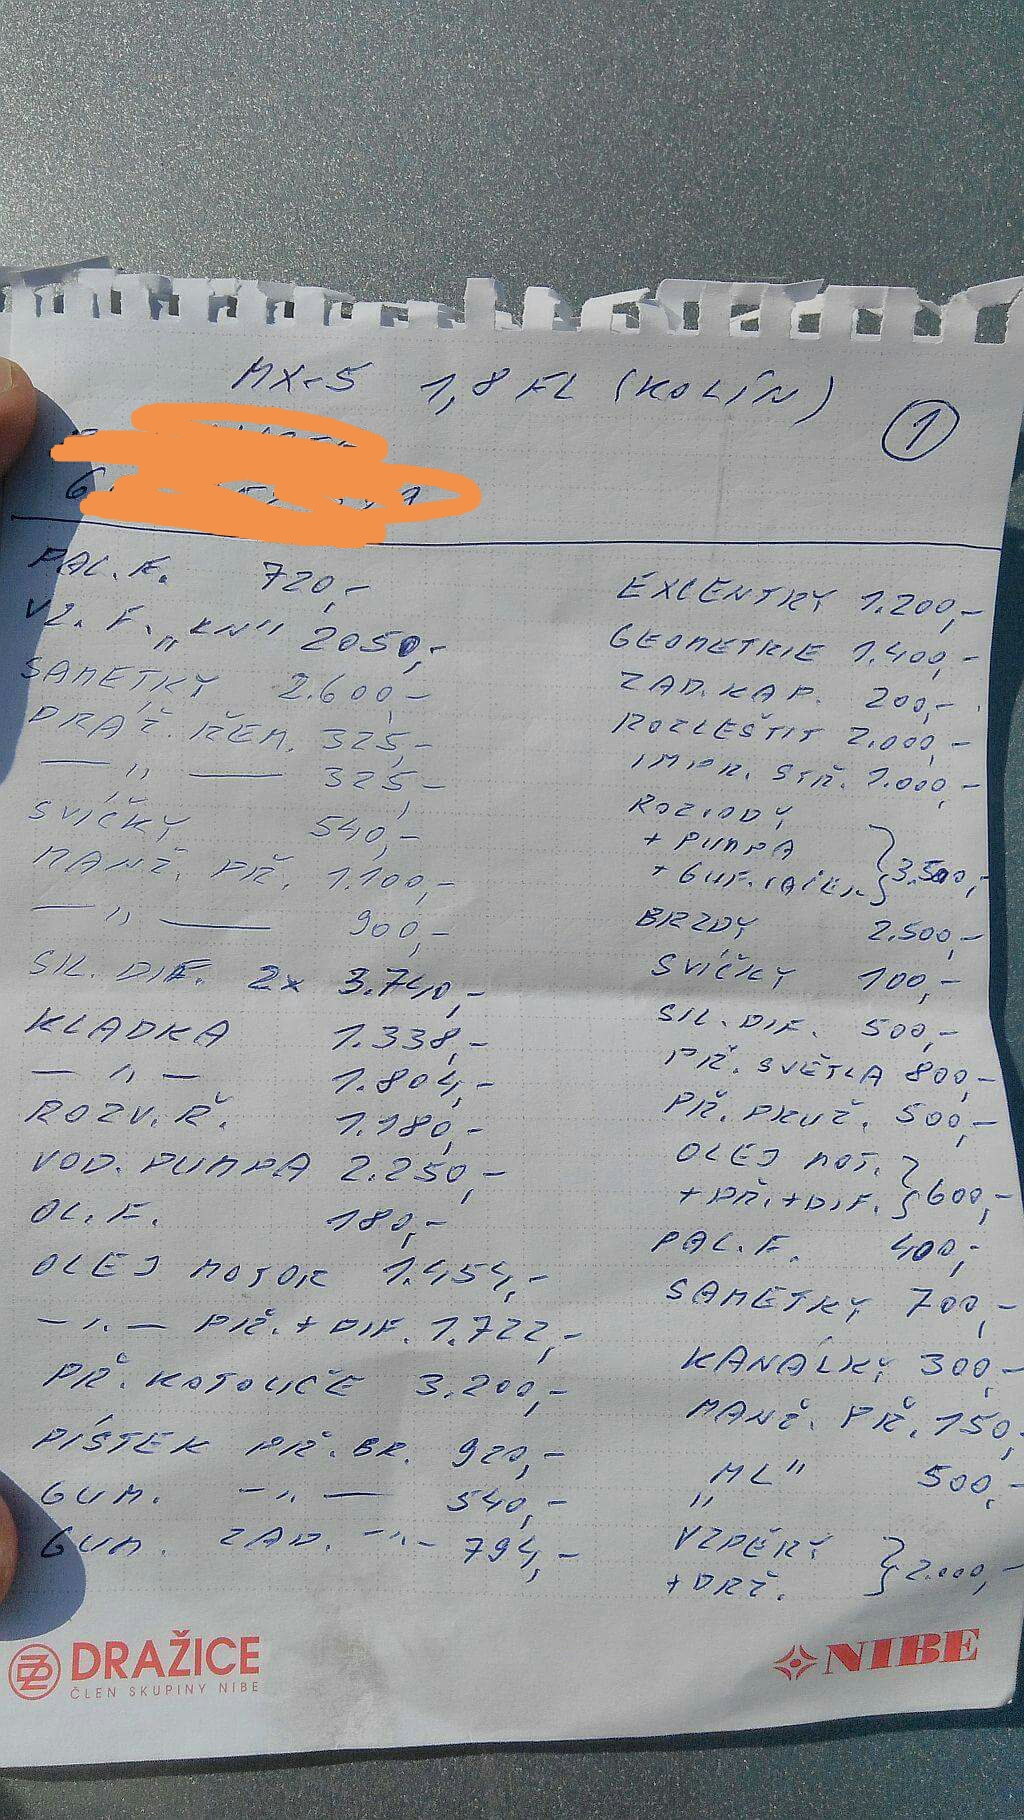 MX-5 1,8 FL (KOLÍN)
1
PAL. F. 720,-
VZ. F. „KN" 2050,-
SAMETKY 2.600,-
DRÁŽ. ŘEM. 325,-
— „ — 325,-
SVÍČKY 540,-
MANŽ. PŘ. 1.100,-
— „ — 900,-
SIL. DIF. 2x 3.740,-
KLADKA 1.338,-
— „ — 1.804,-
ROZV. Ř. 1.180,-
VOD. PUMPA 2.250,-
OL. F. 180,-
OLEJ MOTOR 1.454,-
— „ — PŘ. + DIF. 1.722,-
PŘ. KOTOUČE 3.200,-
PÍSTEK PŘ. BR. 920,-
GUM. — „ — 540,-
GUM. ZAD. — „ — 794,-
EXCENTRY 1.200,-
GEOMETRIE 1.400,-
ZAD. KAP. 200,-
ROZLEŠTIT 2.000,-
IMPR. STŘ. 1.000,-
ROZVODY
+ PUMPA
+ GUF. 3.500,-
BRZDY 2.500,-
SVÍČKY 100,-
SIL. DIF. 500,-
PŘ. SVĚTLA 800,-
PŘ. PRUŽ. 500,-
OLEJ MOT.
+ PŘ. + DIF. 600,-
PAL. F. 400,-
SAMETKY 700,-
KANÁLKY 300,-
MANŽ. PŘ. 150,-
„ML" 500,-
VZPĚRY
+ DRŽ. 2.000,-
DRAŽICE
ČLEN SKUPINY NIBE
NIBE